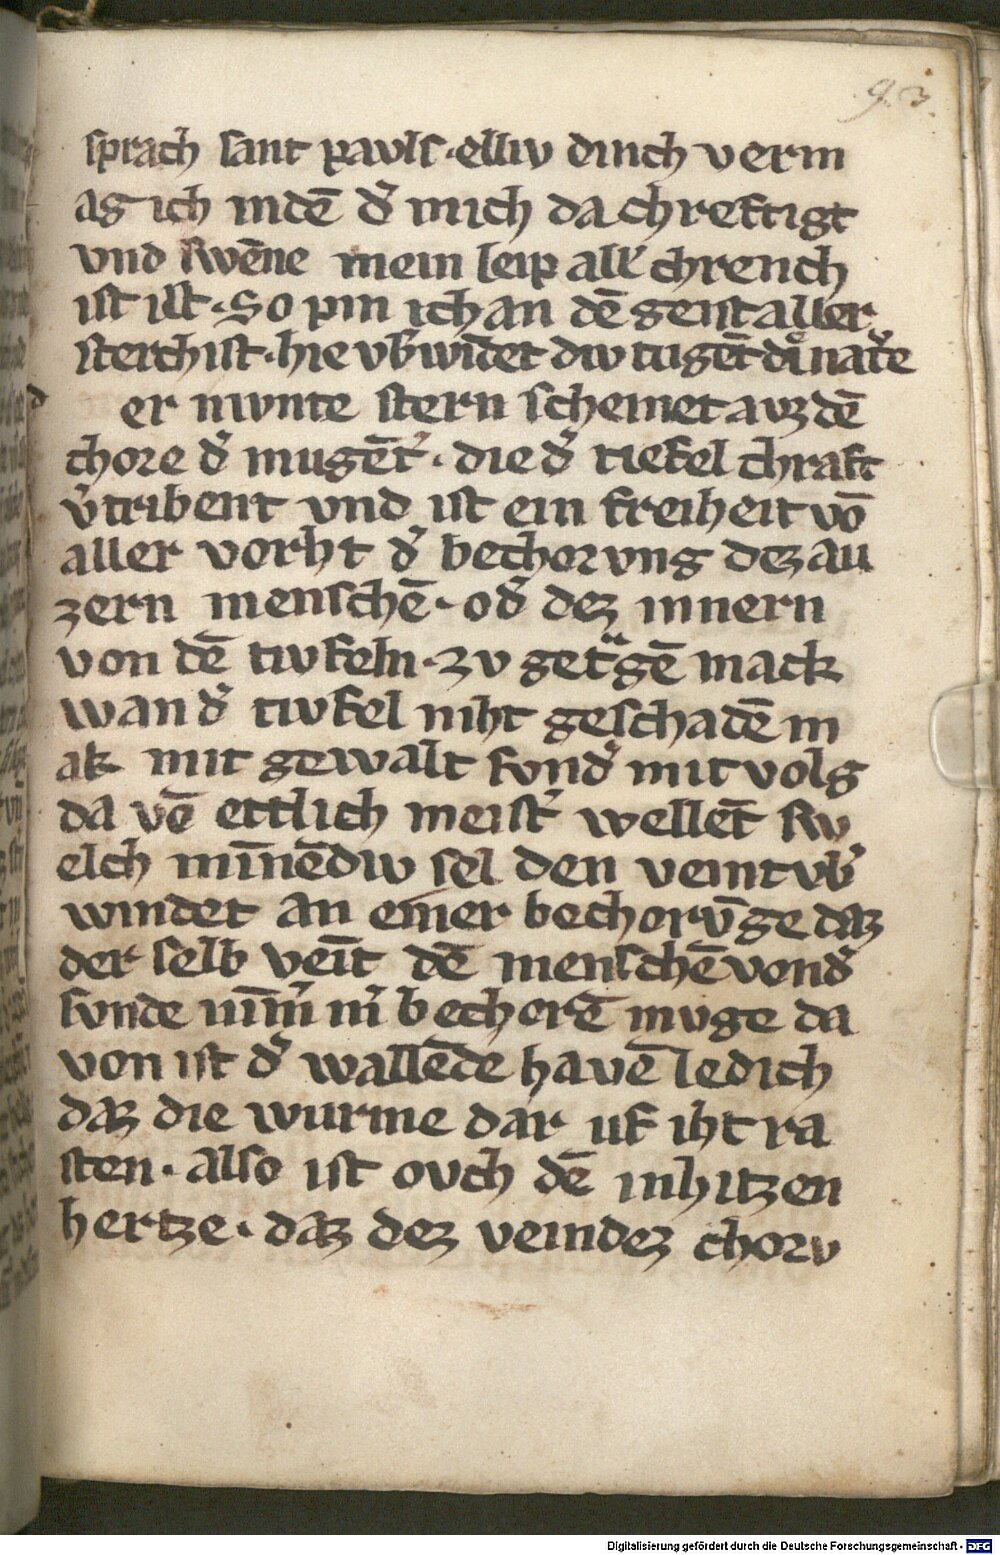 93
sprach sant pavls · elliv dinch verm
ag ich indē d̾ mich da chreftigt
vnd swēne mein leip all̾ chrench
ist ist · So pin ich an dē geist aller
sterchist · hie vb̾windet diw tugēt die nat̾e
d er niunte stern scheinet auz dē
chore d̾ mugēt̾ · die d̾ tiefel chraft
v̾tribent vnd ist ein freiheit vō
aller vorht d̾ bechorvng dez au
zern menschē · od̾ dez innern
von dē tivfeln · zv getᵃgē mack
wan d̾ tivfel niht geschadē m
ak mit gewalt svnd̾ mit volg
da vō ettlich meist̾ wellēt sw
elch minnēdiw sel den veint vb̾
windet an einer bechorv̄ge daz
der selb veīt dē menschē von d̾
svnde nim̄m̾ m̾ bechorē muge da
von ist d̾ wallēde havē ledich
daz die wurme dar uf iht ra
sten · also ist ovch dē inhitzen
hertze · daz dez veindez chorv
Digitalisierung gefördert durch die Deutsche Forschungsgemeinschaft - DFG